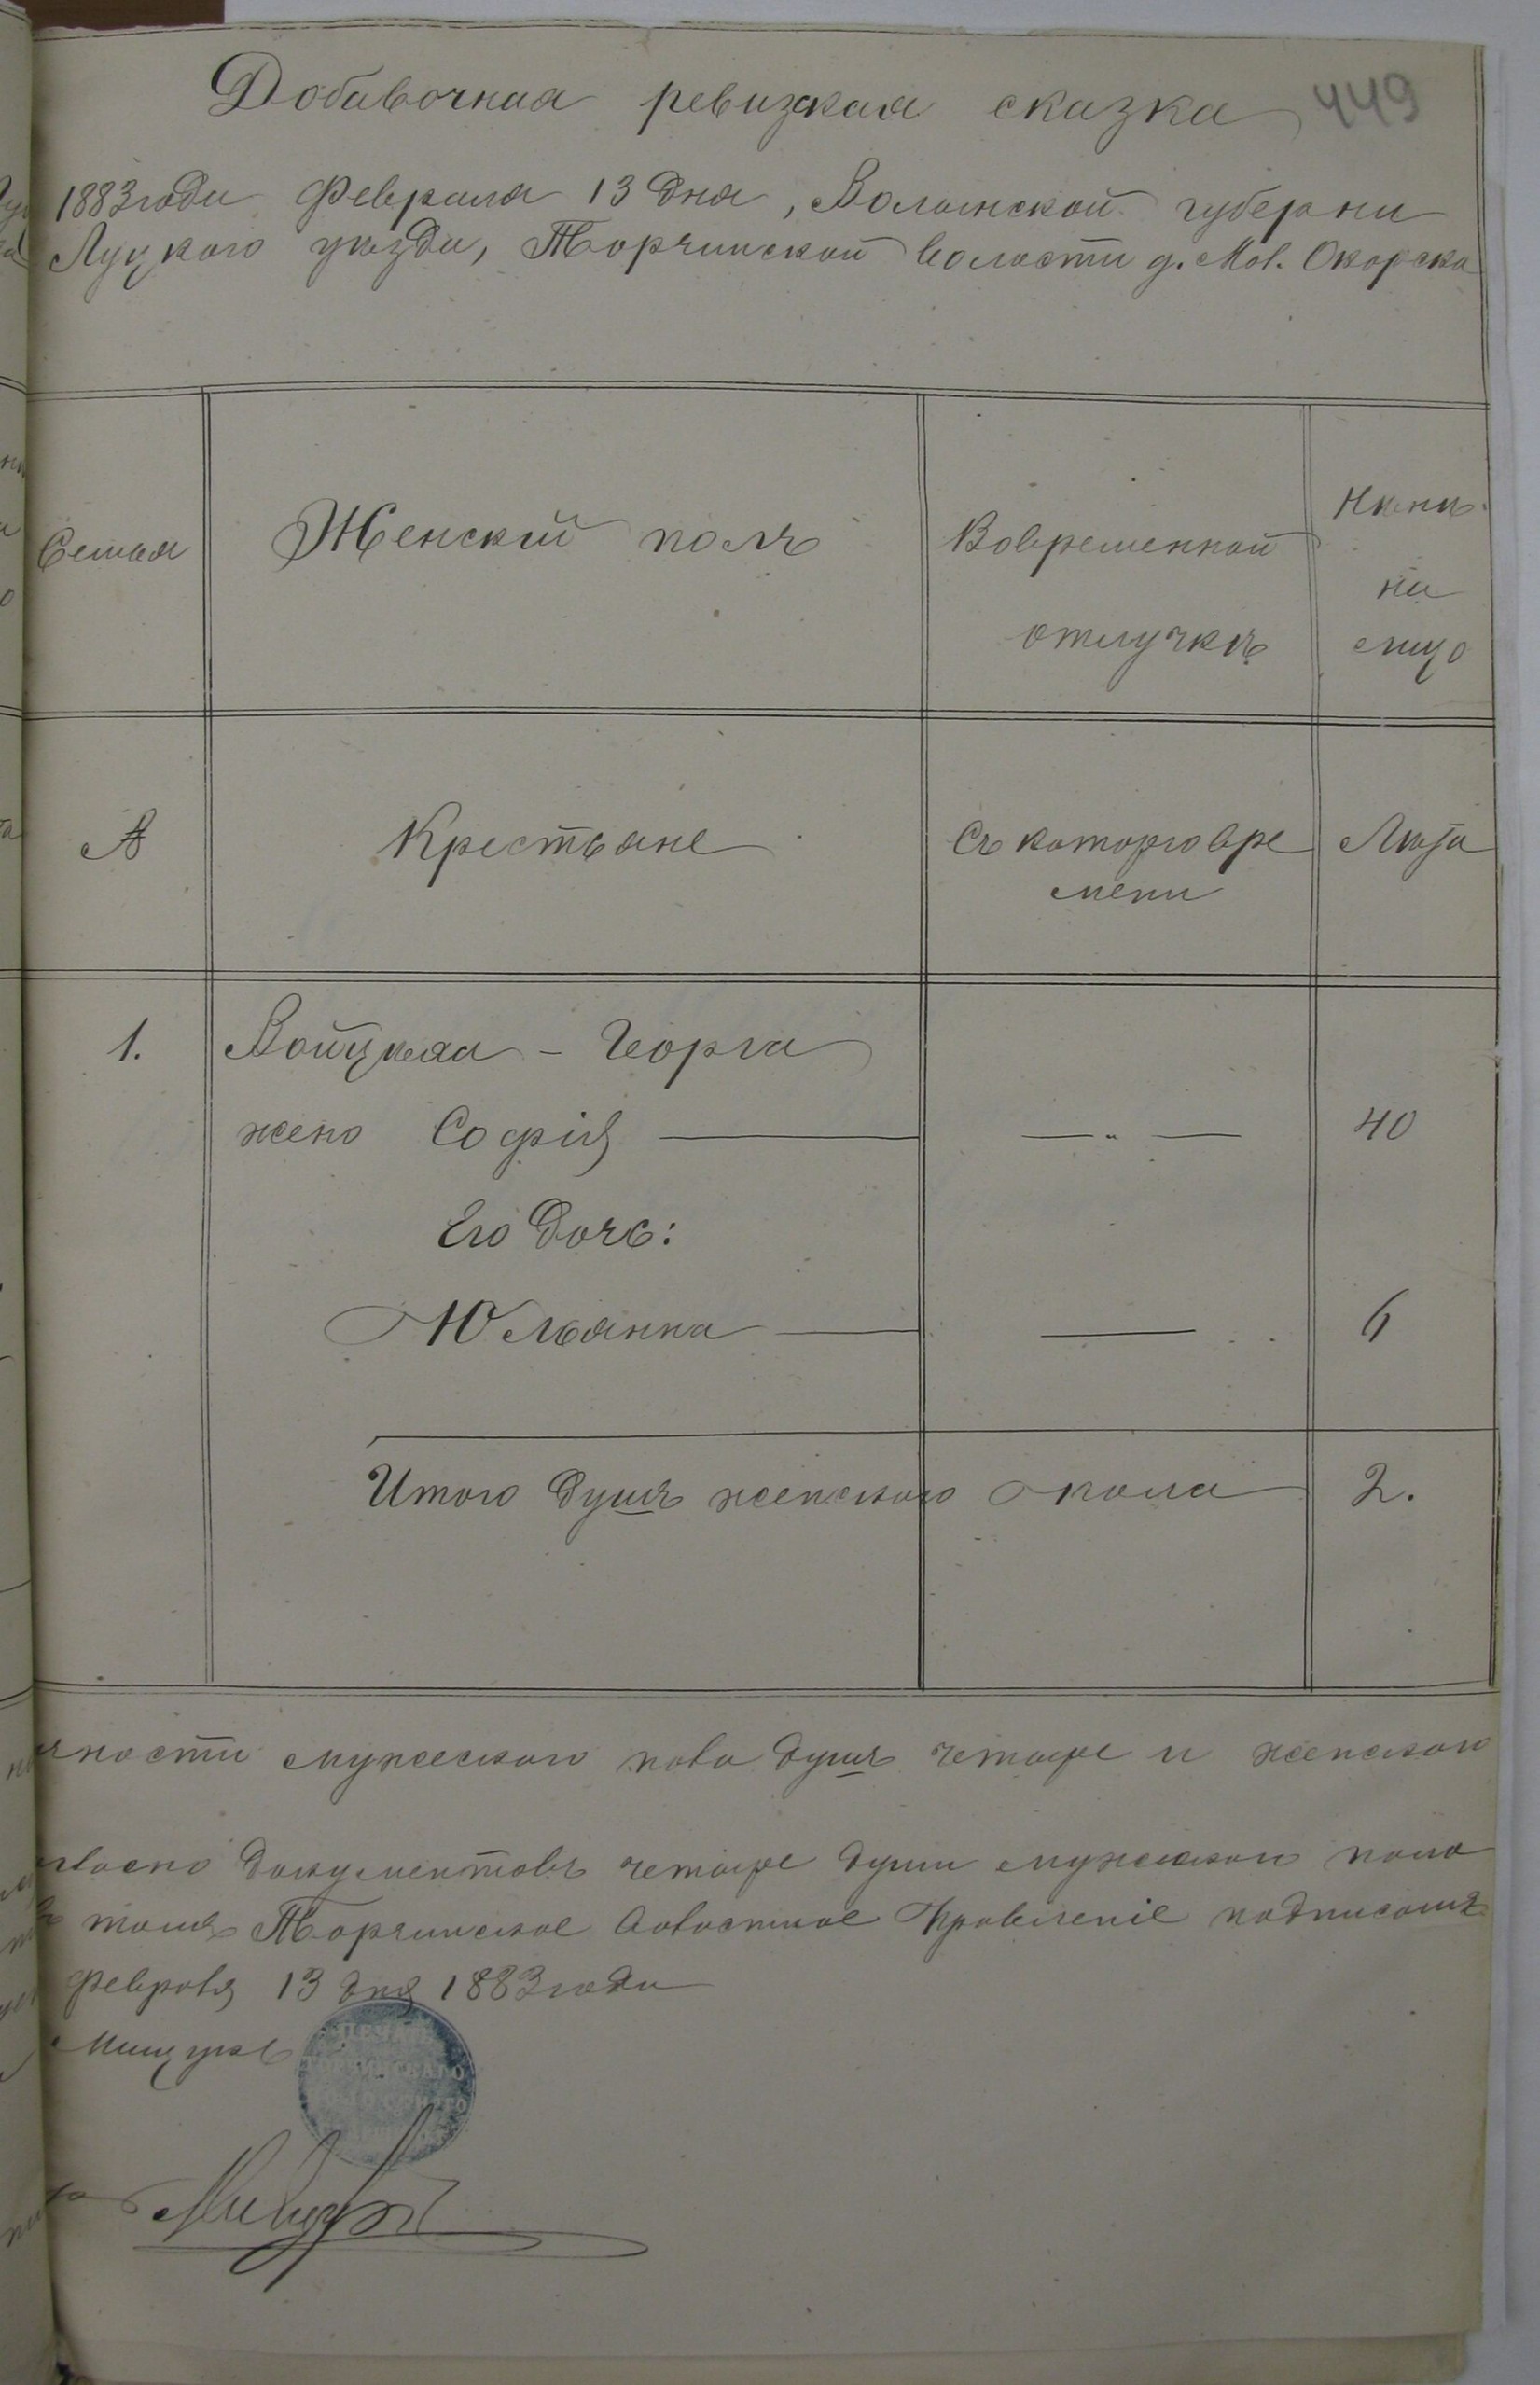 Добавочная ревизская сказка 449
1883 года Февраля 13 дня, Волынской губерни
Луцкого уѣзда, Торчинской волости д. Мал. Окорска
Семья
Женский полъ
Вовременной
отлучкѣ
Нынѣ
на
лицо
А
Крестьяне
Съ которго вре
мени
Лѣта
1.
Георга
жена София 40
Его дочь:
Юльянна 6
Итого душъ женского пола 2.
мужеского пола душъ четыре и женского
документовъ четыре души мужеского пола
Торчинское Волостное Правленіе
Февраля 13 дня 1883 года
Мищукъ
ПЕЧАТЬ